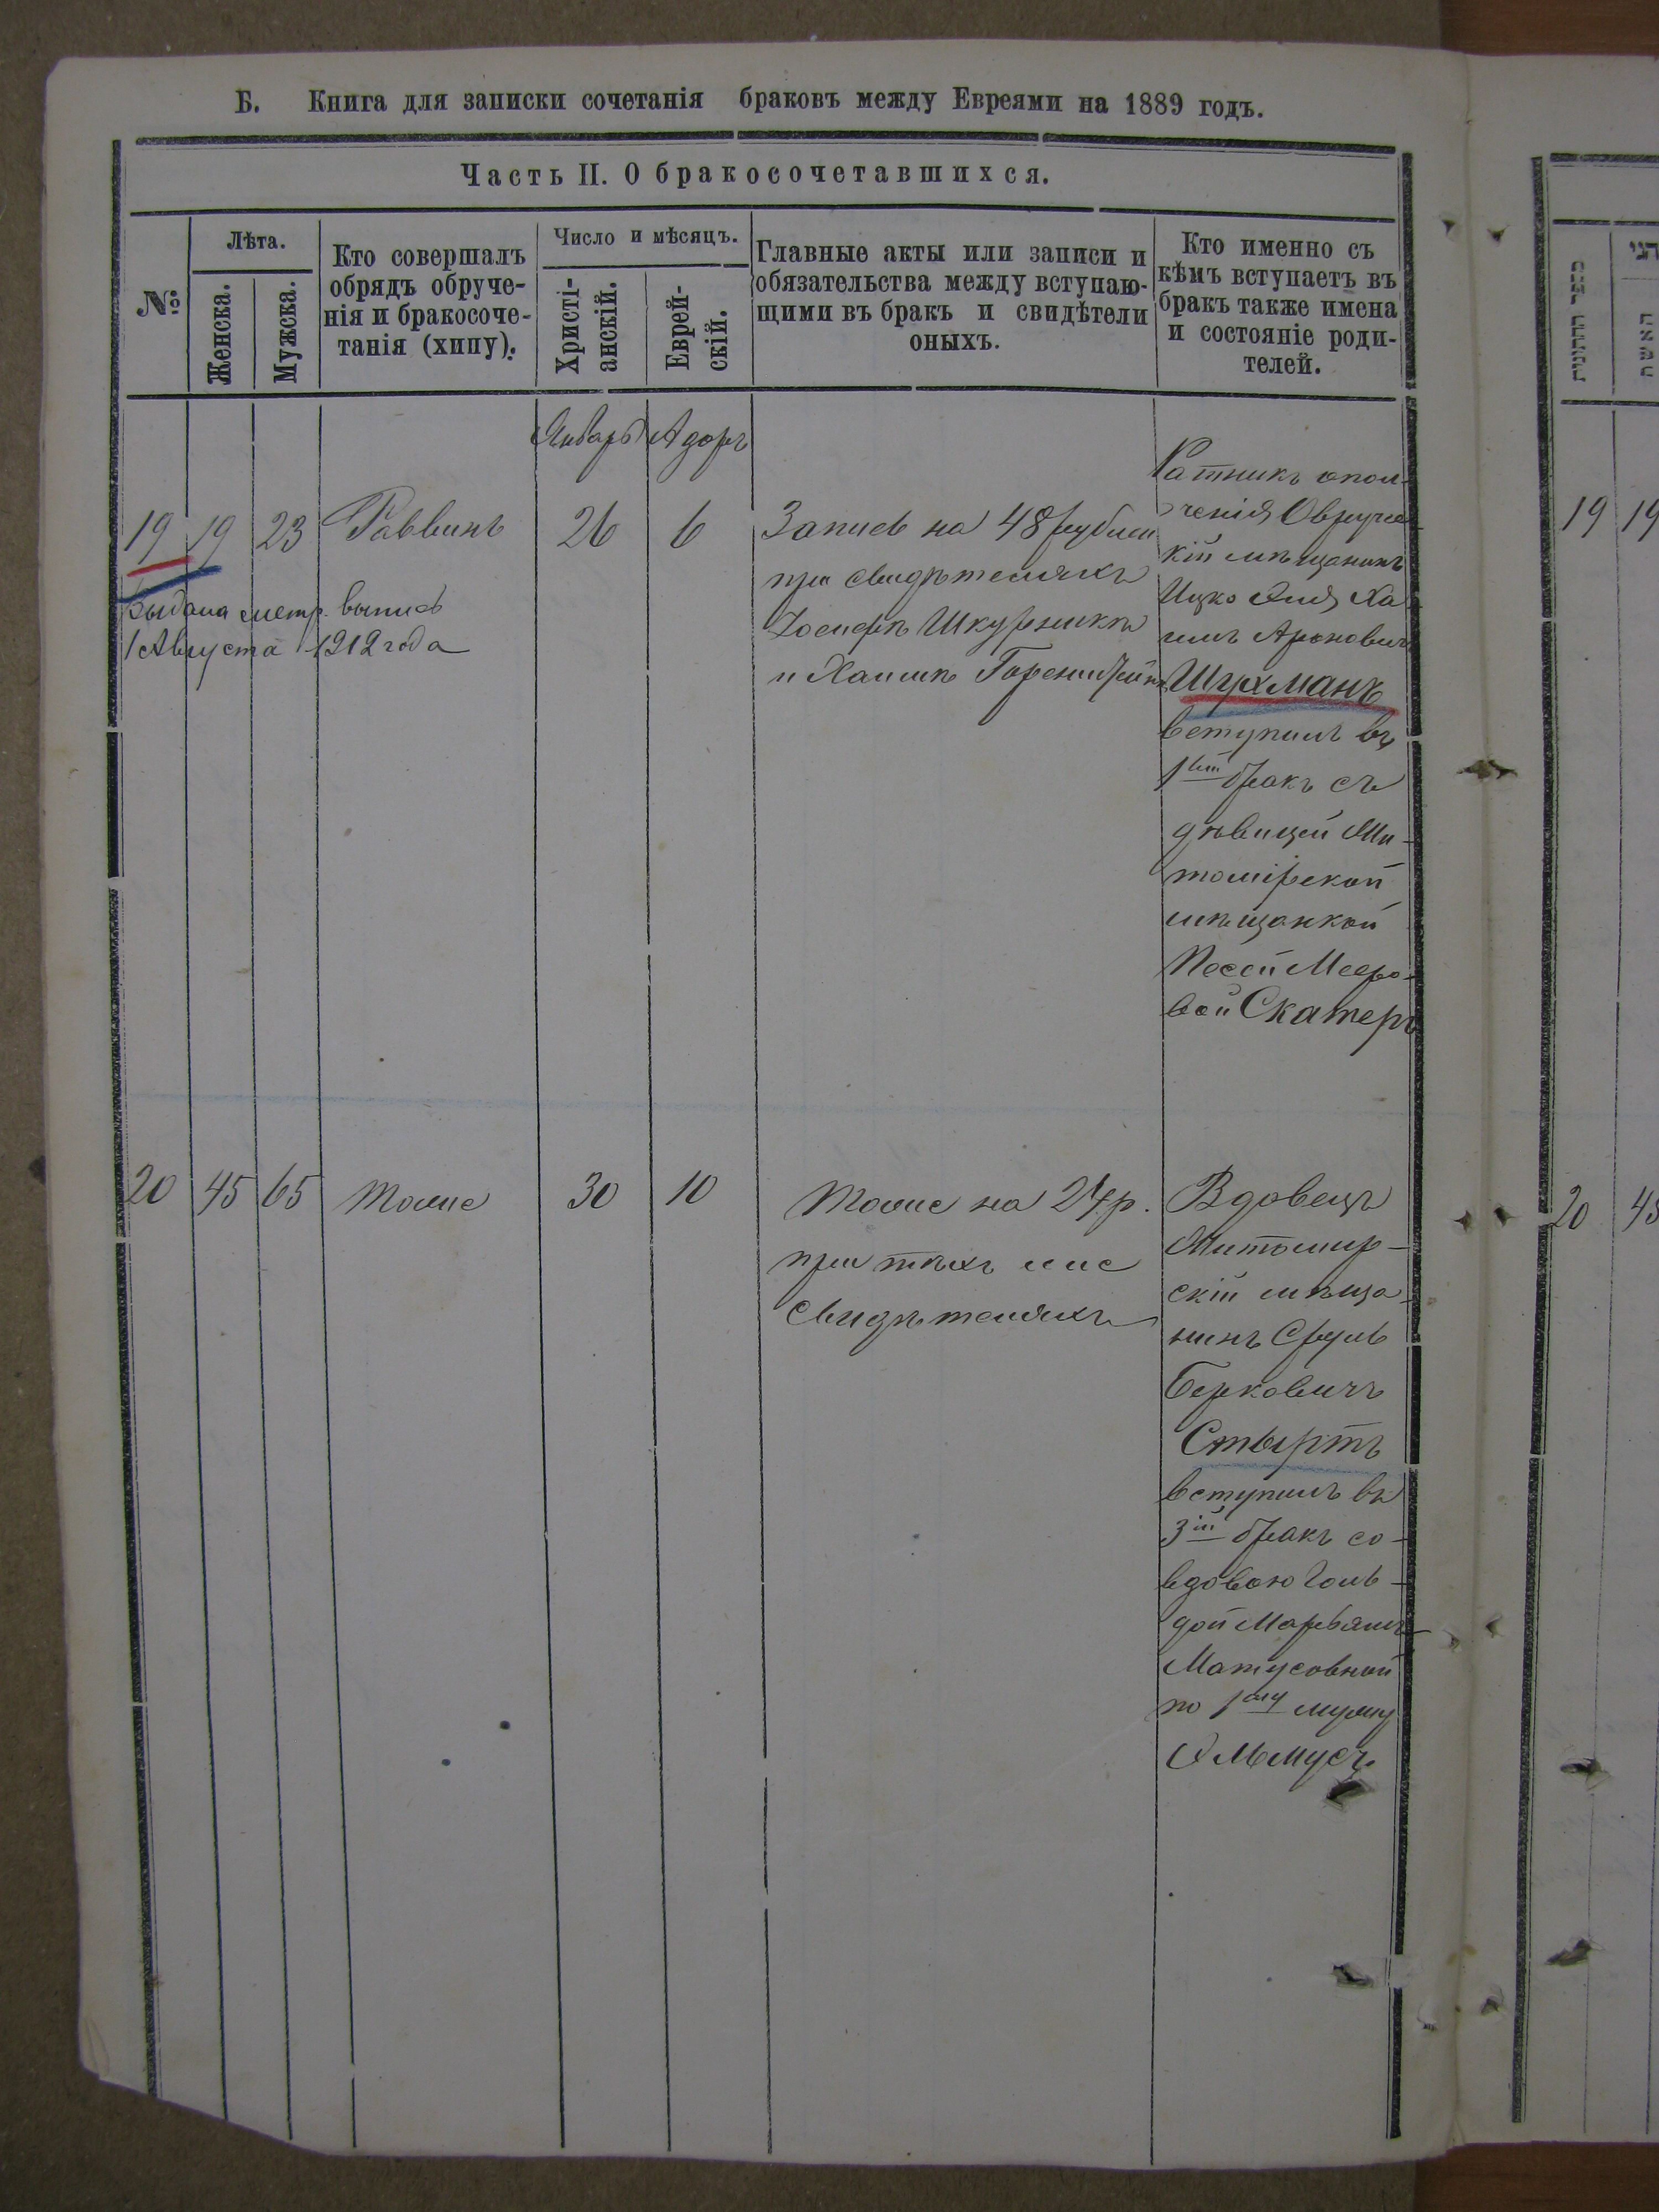 Б. Книга для записки сочетанія браковъ между Евреями на 1889 годъ.
Часть II. О бракосочетавшихся.
№
Лѣта.
Женска.
Мужска.
Кто совершалъ
обрядъ обруче-
нія и бракосоче-
танія (хипу).
Число и мѣсяцъ.
Христі-
анскій.
Еврей-
скій.
Главные акты или записи и
обязательства между вступаю-
щими въ бракъ и свидѣтели
оныхъ.
Кто именно съ
кѣмъ вступаетъ въ
бракъ также имена
и состояніе роди-
телей.
Январь
Адоръ
19
19
23
Раввинъ
26
6
Выдана метр. выпись
1 Августа 1912 года
Запись на 48 рублей
при свидѣтеляхъ
Іосифѣ Шкурникѣ
и Хаимѣ
Ратникъ опол-
ченія Овруче-
кій мѣщанинъ
Ицко Эля Ха
имъ Ароновичъ
Шухманъ
вступилъ въ
1вый бракъ съ
дѣвицей Жи-
томірской
мѣщанкой
Песей Мееро-
вой Скатеръ
20
45
65
тоже
30
10
тоже на 24 р.
при тѣхъ же
свидѣтеляхъ
Вдовецъ
Житомир-
скій мѣща-
нинъ Сруль
Берковичъ
Стыртъ
вступилъ въ
3ій бракъ со-
вдовою Голь-
дой Марьямъ-
Матусовной
по 1ому мужу
Ольмусъ
מספר החתונות
האשה
19
19
20
45